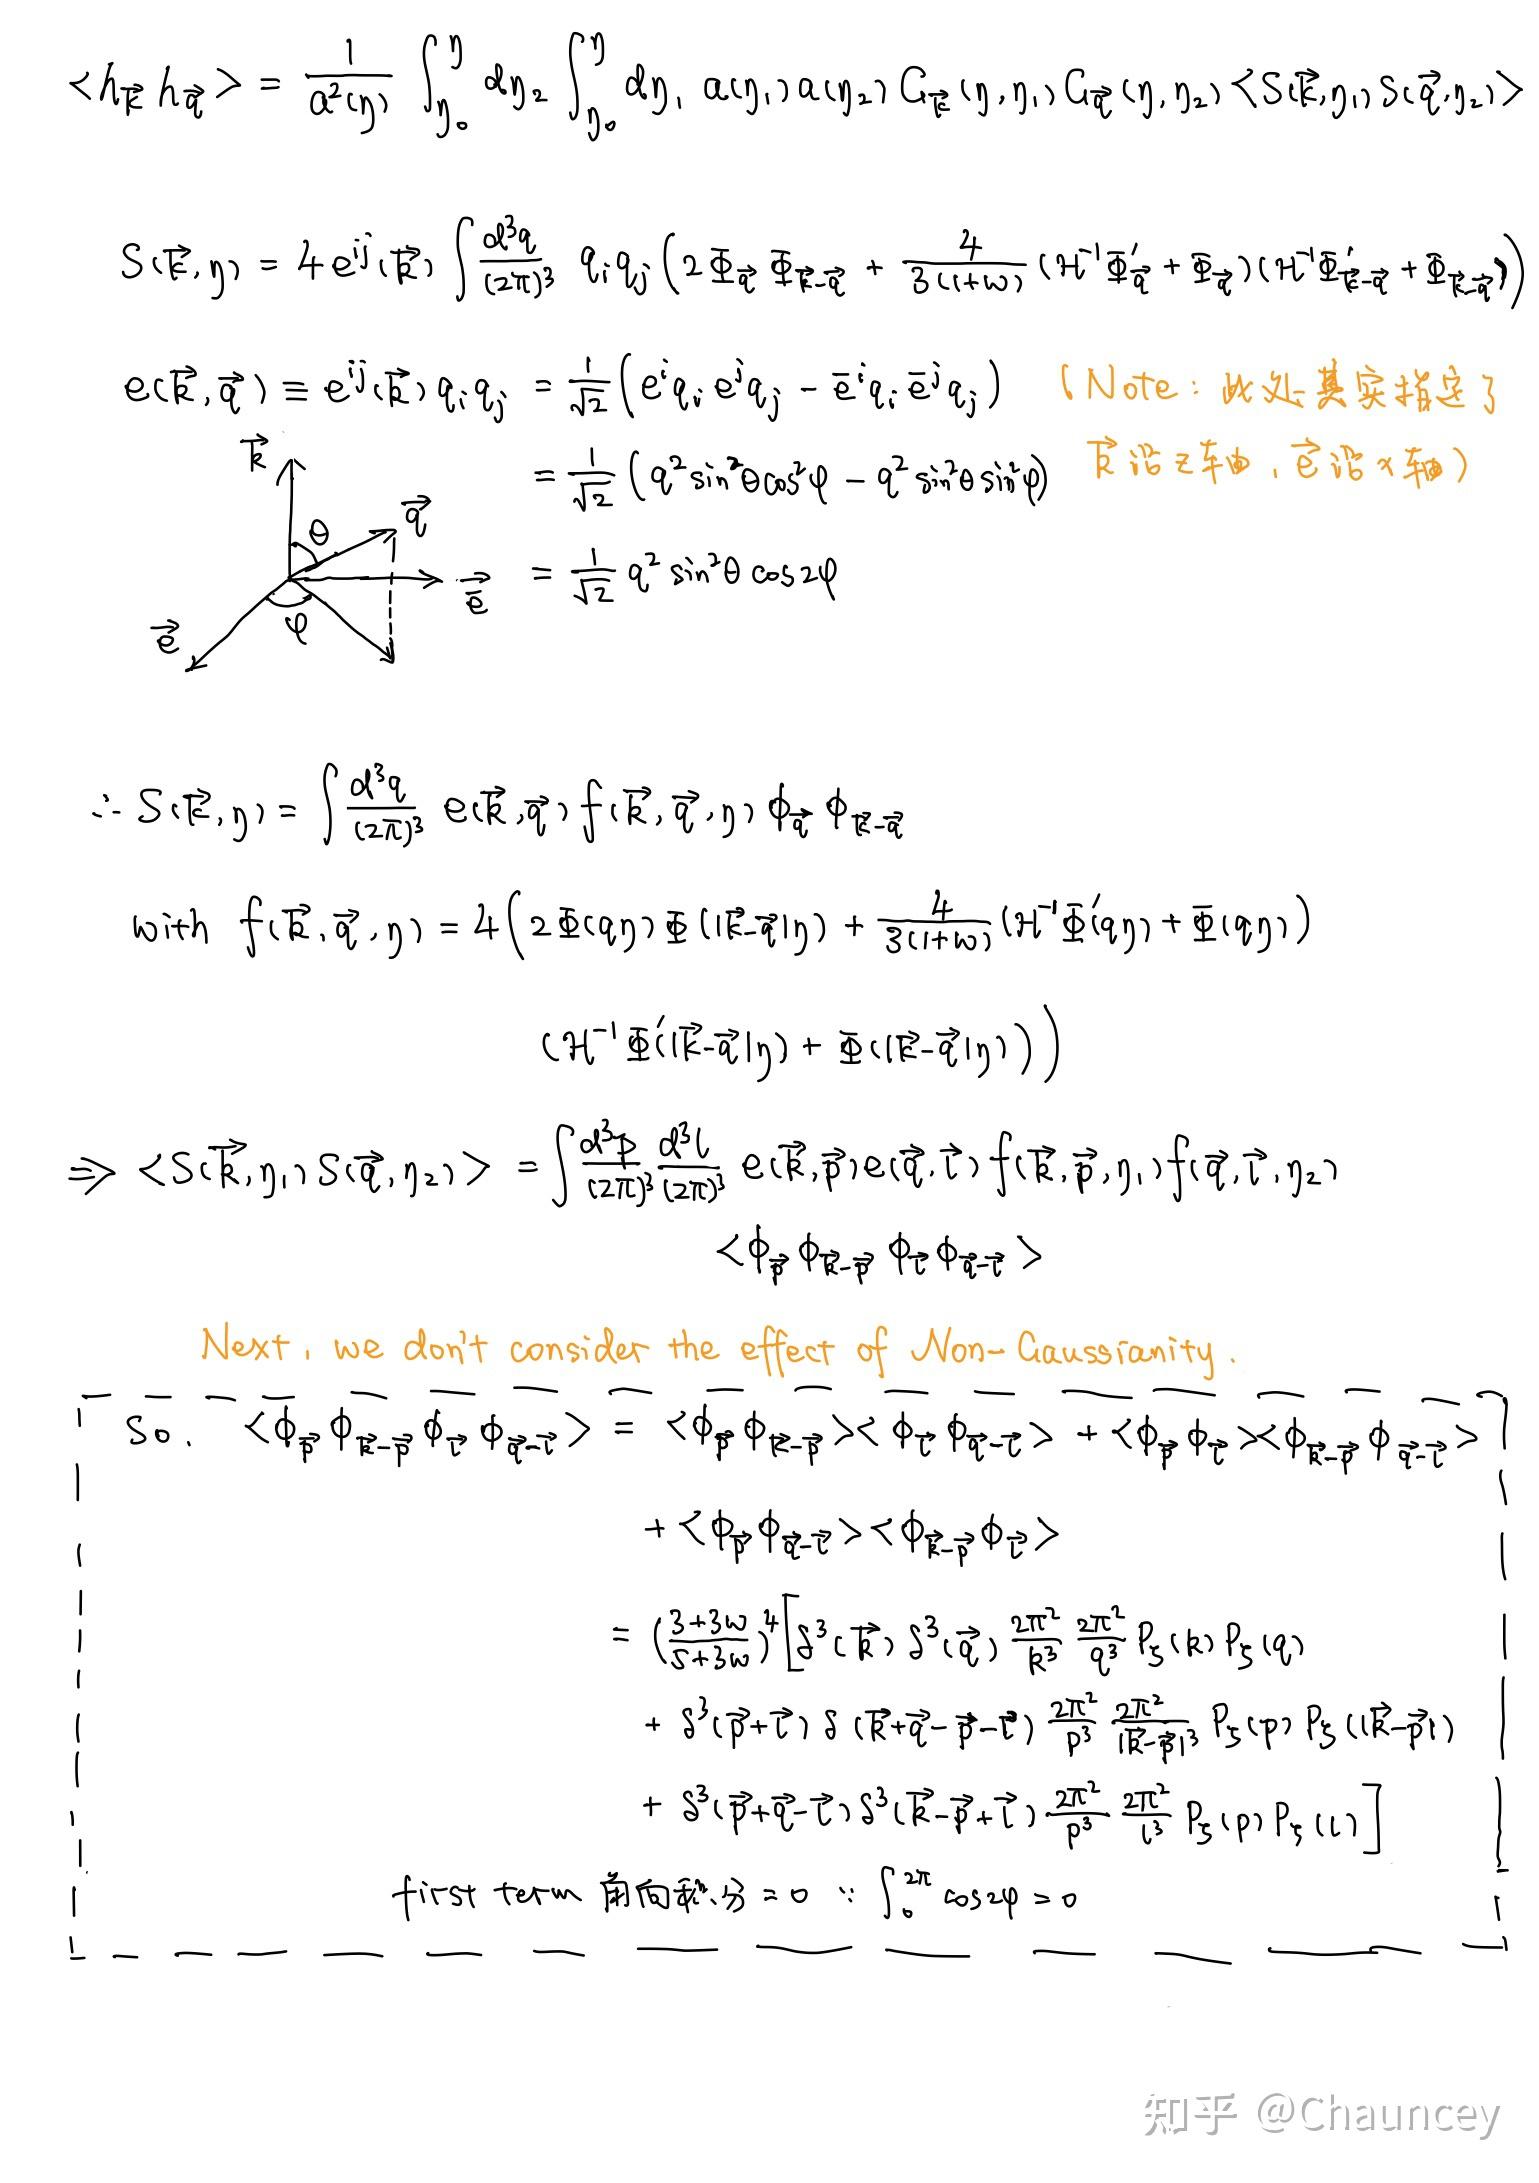 <h_{\vec{k}} h_{\vec{q}}> = \frac{1}{a^2(η)} \int_{η_0}^{η} dη_2 \int_{η_0}^{η} dη_1 a(η_1) a(η_2) G_{\vec{k}}(η,η_1) G_{\vec{q}}(η,η_2) <S(\vec{k},η_1) S(\vec{q},η_2)>
S(\vec{k},η) = 4 e^{ij}(\vec{k}) \int \frac{d^3q}{(2π)^3} q_i q_j (2Φ_{\vec{q}} Φ_{\vec{k}-\vec{q}} + \frac{4}{3(1+w)} (ℋ^{-1}Φ'_{\vec{q}} + Φ_{\vec{q}})(ℋ^{-1}Φ'_{\vec{k}-\vec{q}} + Φ_{\vec{k}-\vec{q}}))
e(\vec{k},\vec{q}) ≡ e^{ij}(\vec{k}) q_i q_j = \frac{1}{\sqrt{2}} (e^i q_i e^j q_j - \bar{e}^i q_i \bar{e}^j q_j) (Note: 此处其实指定了
\vec{k} 沿z轴, \vec{e} 沿x轴)
= \frac{1}{\sqrt{2}} (q^2 sin^2θ cos^2φ - q^2 sin^2θ sin^2φ)
= \frac{1}{\sqrt{2}} q^2 sin^2θ cos2φ
\vec{k}
\vec{q}
θ
\vec{\bar{e}}
φ
\vec{e}
∴ S(\vec{k},η) = \int \frac{d^3q}{(2π)^3} e(\vec{k},\vec{q}) f(\vec{k},\vec{q},η) ϕ_{\vec{q}} ϕ_{\vec{k}-\vec{q}}
with f(\vec{k},\vec{q},η) = 4(2Φ(qη)Φ(|\vec{k}-\vec{q}|η) + \frac{4}{3(1+w)} (ℋ^{-1}Φ'(qη) + Φ(qη))
(ℋ^{-1}Φ'(|\vec{k}-\vec{q}|η) + Φ(|\vec{k}-\vec{q}|η)))
⇒ <S(\vec{k},η_1) S(\vec{q},η_2)> = \int \frac{d^3p}{(2π)^3} \frac{d^3l}{(2π)^3} e(\vec{k},\vec{p}) e(\vec{q},\vec{l}) f(\vec{k},\vec{p},η_1) f(\vec{q},\vec{l},η_2)
<ϕ_{\vec{p}} ϕ_{\vec{k}-\vec{p}} ϕ_{\vec{l}} ϕ_{\vec{q}-\vec{l}}>
Next, we don't consider the effect of Non-Gaussianity.
So. <ϕ_{\vec{p}} ϕ_{\vec{k}-\vec{p}} ϕ_{\vec{l}} ϕ_{\vec{q}-\vec{l}}> = <ϕ_{\vec{p}} ϕ_{\vec{k}-\vec{p}}><ϕ_{\vec{l}} ϕ_{\vec{q}-\vec{l}}> + <ϕ_{\vec{p}} ϕ_{\vec{l}}><ϕ_{\vec{k}-\vec{p}} ϕ_{\vec{q}-\vec{l}}>
+ <ϕ_{\vec{p}} ϕ_{\vec{q}-\vec{l}}><ϕ_{\vec{k}-\vec{p}} ϕ_{\vec{l}}>
= (\frac{3+3w}{5+3w})^4 [δ^3(\vec{k}) δ^3(\vec{q}) \frac{2π^2}{k^3} \frac{2π^2}{q^3} P_ζ(k) P_ζ(q)
+ δ^3(\vec{p}+\vec{l}) δ(\vec{k}+\vec{q}-\vec{p}-\vec{l}) \frac{2π^2}{p^3} \frac{2π^2}{|\vec{k}-\vec{p}|^3} P_ζ(p) P_ζ(|\vec{k}-\vec{p}|)
+ δ^3(\vec{p}+\vec{q}-\vec{l}) δ^3(\vec{k}-\vec{p}+\vec{l}) \frac{2π^2}{p^3} \frac{2π^2}{l^3} P_ζ(p) P_ζ(l)]
first term 角向积分 = 0 ∵ \int_0^{2π} cos2φ = 0
知乎 @Chauncey